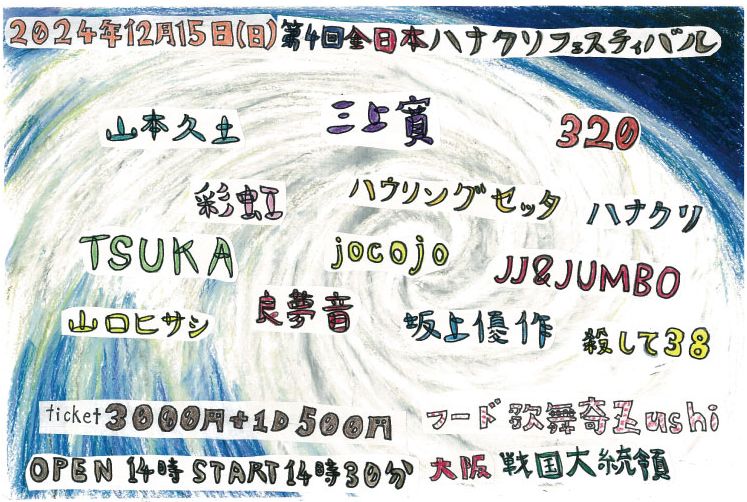 2024年12月15日(日)第4回全日本ハナクソフェスティバル
山本久土 三上寛 320
彩虹 ハウリングゼッタ ハナクソ
TSUKA jocojo JJ&JUMBO
山口ヒサシ 良夢音 坂上優作 殺して38
ticket 3000円+1D500円 フード歌舞奇Zushi
OPEN 14時 START 14時30分 大阪 戦国大統領